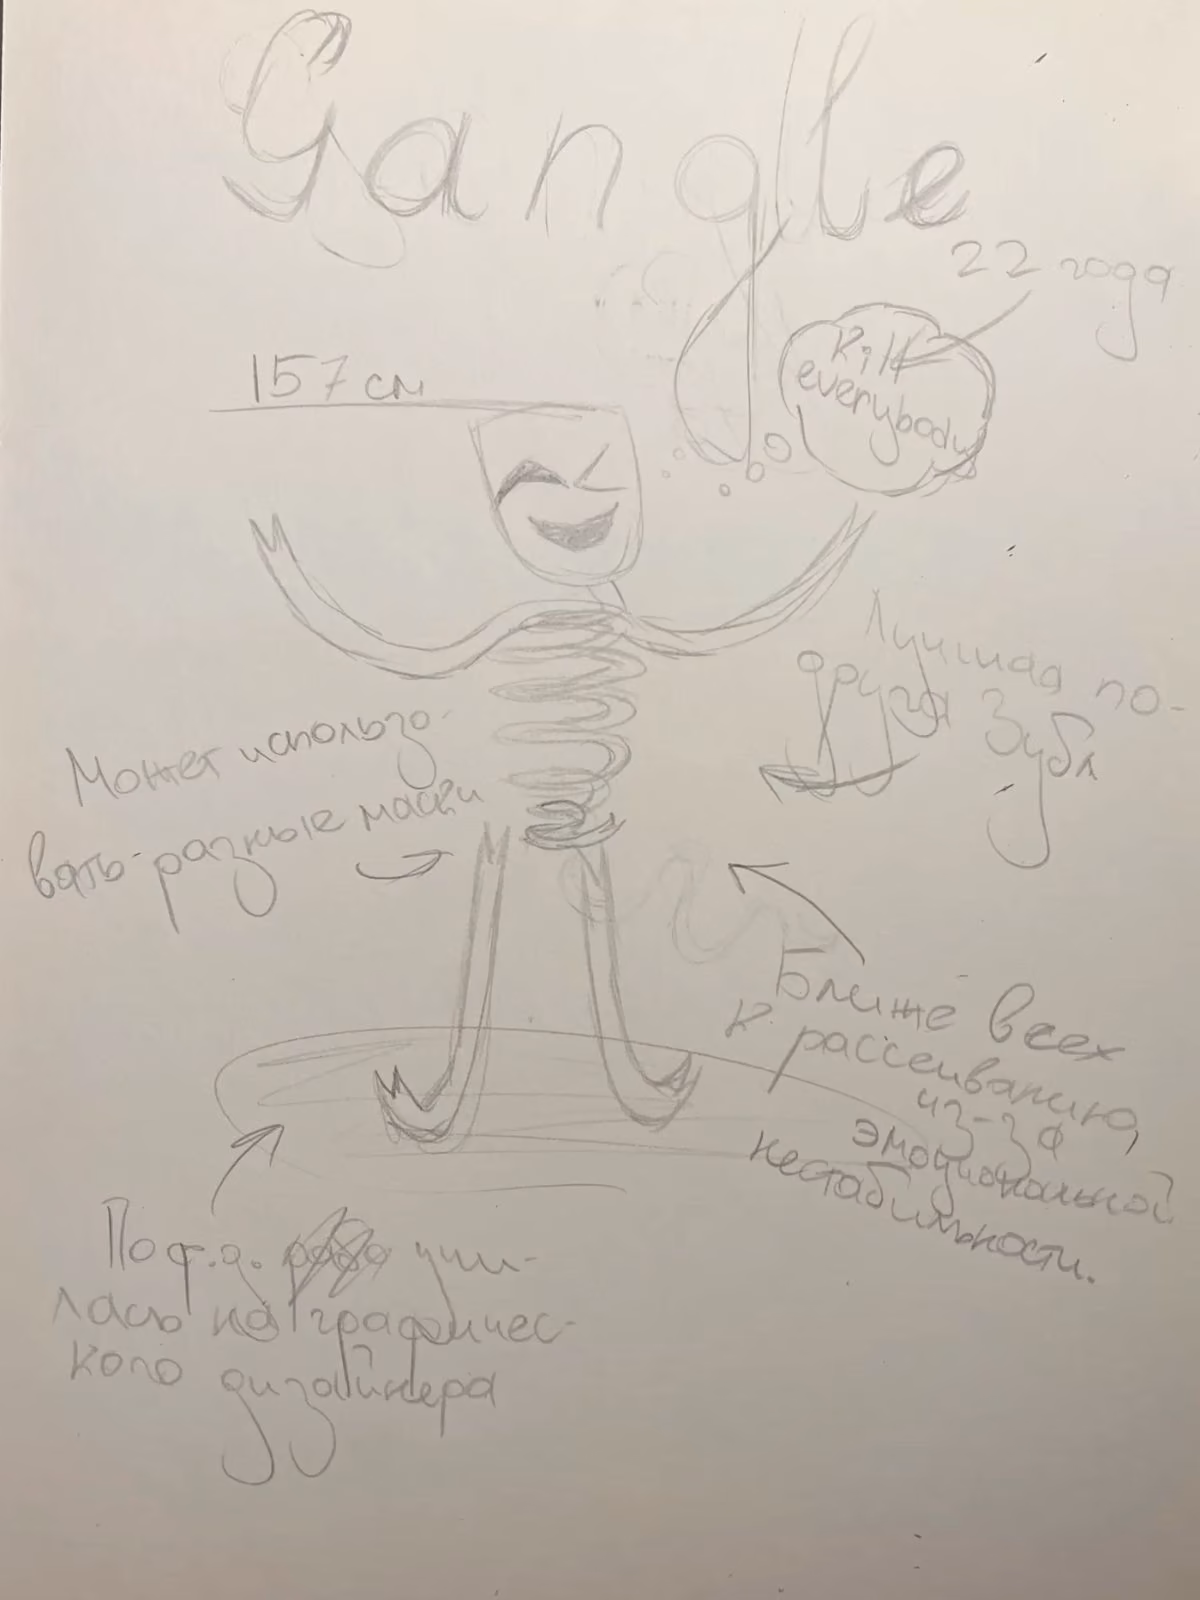 Gangle
22 года
157 см
Kill
everybody
Лучшая по-
друга Зубл
Может использо-
вать разные маски
Ближе всех
к рассеиванию,
из-за
эмоциональной
нестабильности.
По ф.д. учи-
лась на графичес-
кого дизайнера